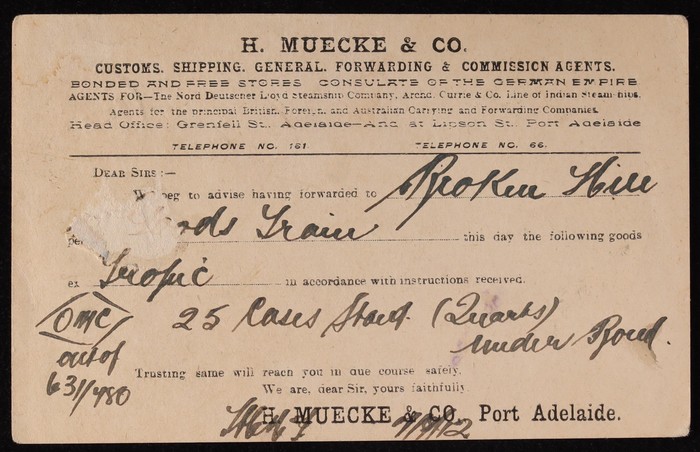 H. MUECKE & CO.
CUSTOMS, SHIPPING, GENERAL, FORWARDING & COMMISSION AGENTS.
BONDED AND FREE STORES CONSULATE OF THE GERMAN EMPIRE
AGENTS FOR—The Nord Deutscher Lloyd Steamship Company, Archd. Currie & Co. Line of Indian Steamships,
Agents for the principal British, Foreign, and Australian Carrying and Forwarding Companies.
Head Office: Grenfell St., Adelaide—And at Lipson St., Port Adelaide
TELEPHONE NO. 161 TELEPHONE NO. 66.
DEAR SIRS:—
We beg to advise having forwarded to Broken Hill
pe ods Train this day the following goods
ex Tropic in accordance with instructions received.
OMC 25 Cases (Quarts)
out of under Bond.
631/480 Trusting same will reach you in due course safely,
We are, dear Sir, yours faithfully
H. MUECKE & CO., Port Adelaide.